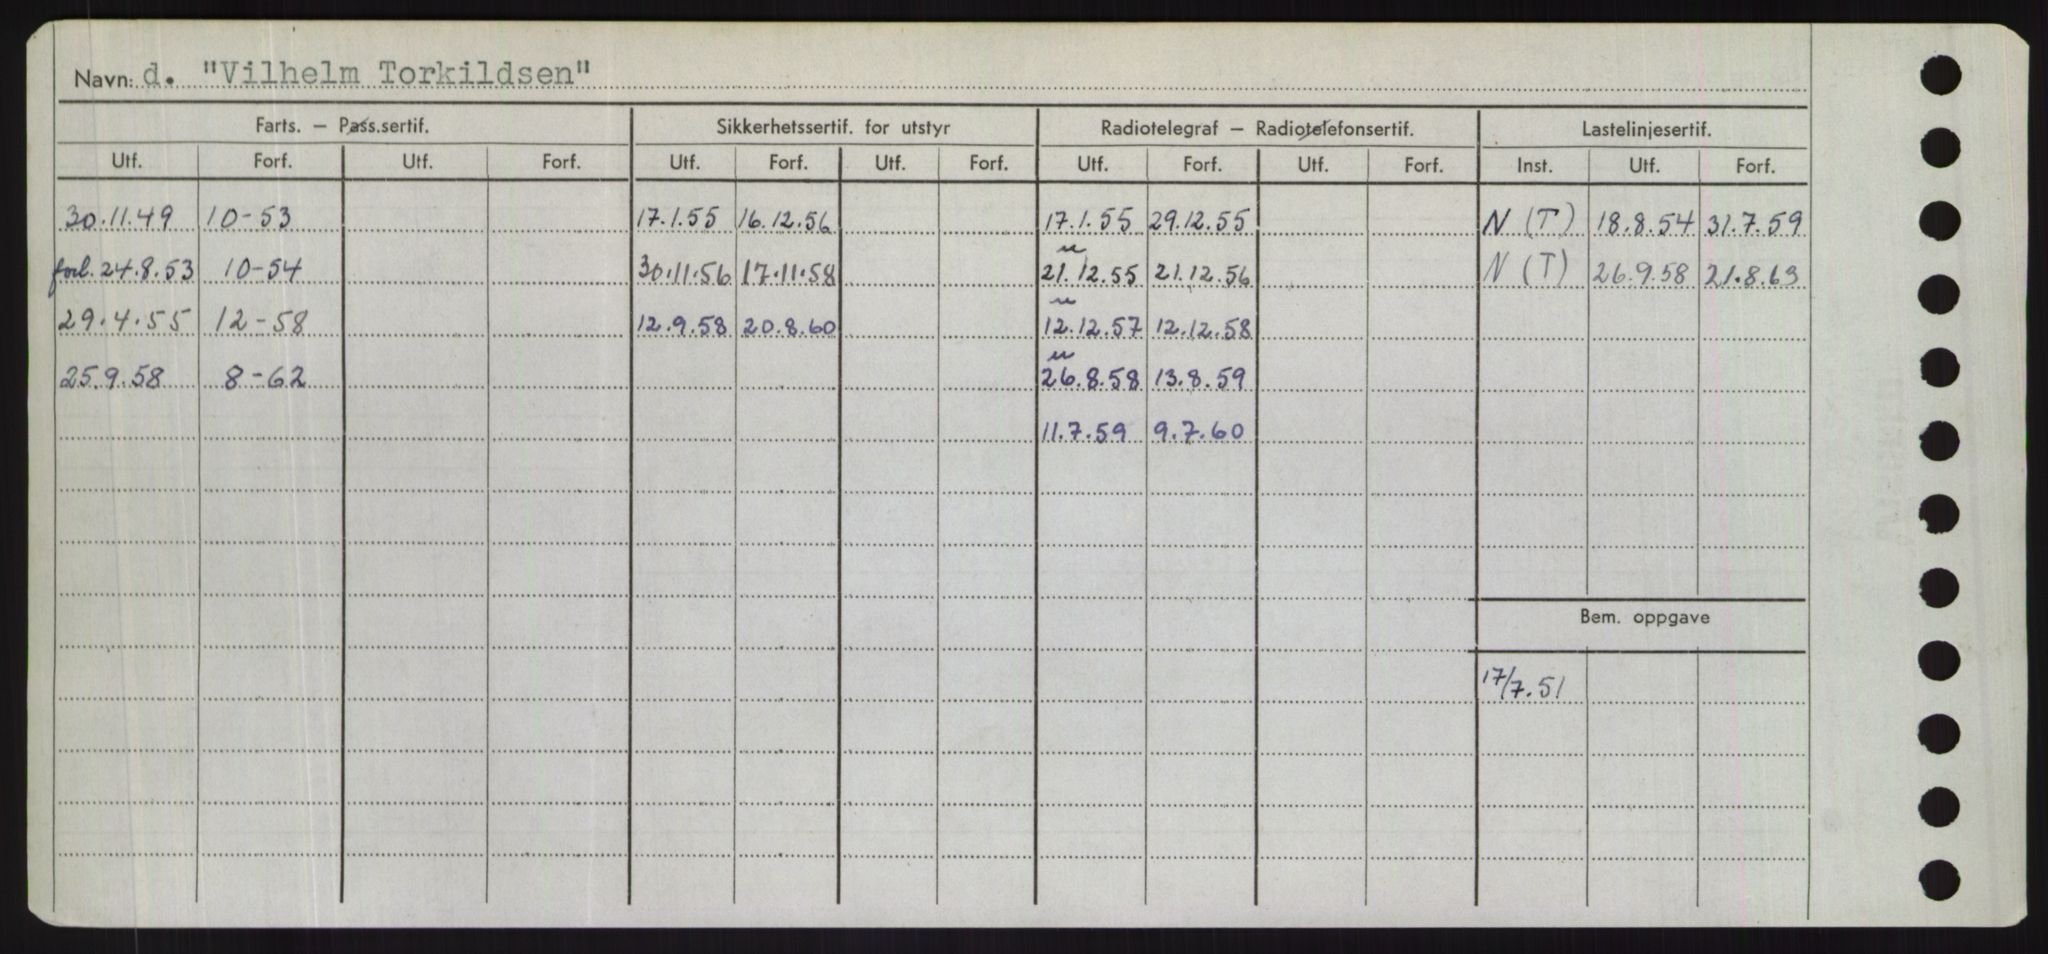 Navn: d. "Vilhelm Torkildsen"
Farts. – Pass.sertif. Sikkerhetssertif. for utstyr Radiotelegraf – Radiotelefonsertif. Lastelinjesertif.
Utf. Forf. Utf. Forf. Utf. Forf. Utf. Forf. Utf. Forf. Utf. Forf. Inst. Utf. Forf.
30.11.49 10-53 17.1.55 16.12.56 17.1.55 29.12.55 N (T) 18.8.54 31.7.59
forl. 24.8.53 10-54 30.11.56 17.11.58 21.12.55 21.12.56 N (T) 26.9.58 21.8.63
29.4.55 12-58 12.9.58 20.8.60 12.12.57 12.12.58
25.9.58 8-62 26.8.58 13.8.59
11.7.59 9.7.60
Bem. oppgave
17/7.51